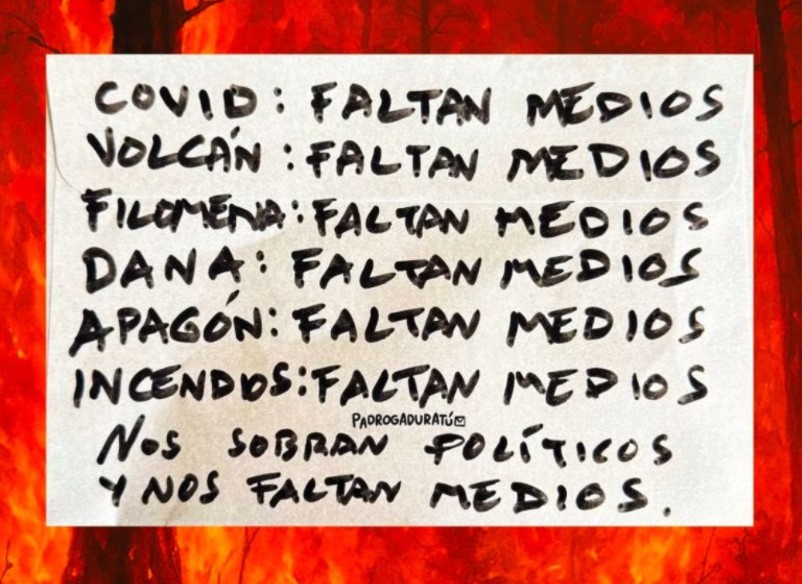 COVID: FALTAN MEDIOS
VOLCÁN: FALTAN MEDIOS
FILOMENA: FALTAN MEDIOS
DANA: FALTAN MEDIOS
APAGÓN: FALTAN MEDIOS
INCENDIOS: FALTAN MEDIOS
PADROGADURATÚ
NOS SOBRAN POLÍTICOS
Y NOS FALTAN MEDIOS.